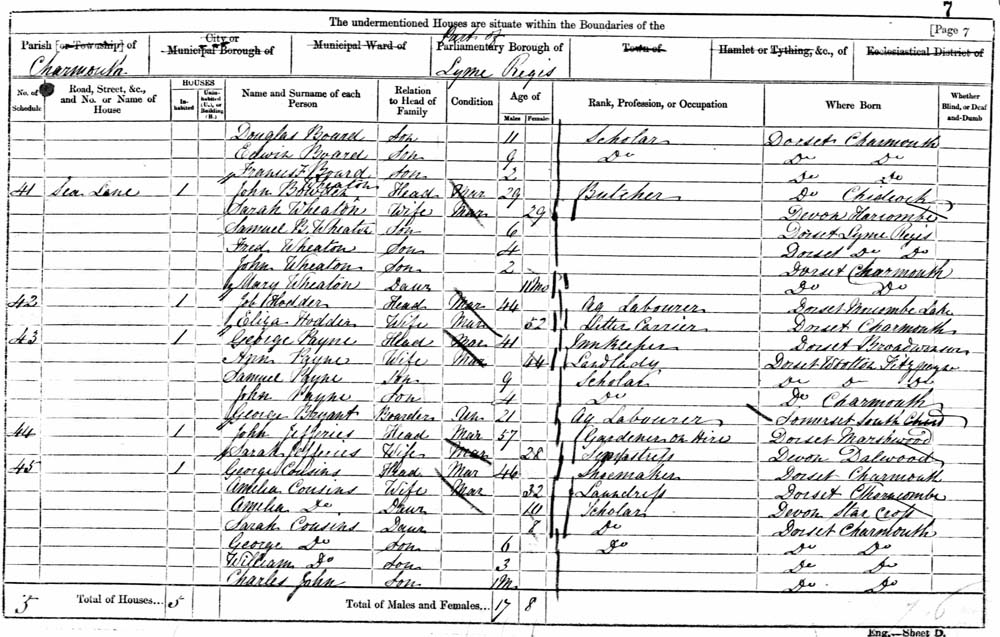 7
The undermentioned Houses are situate within the Boundaries of the [Page 7
Parish [or Township] of City or Municipal Borough of Municipal Ward of Part of Parliamentary Borough of Town of Hamlet or Tything, &c., of Ecclesiastical District of
Charmouth Lyme Regis
No. of Schedule Road, Street, &c., and No. or Name of House HOUSES Inhabited Uninhabited (U.), or Building (B.) Name and Surname of each Person Relation to Head of Family Condition Age of Males Females Rank, Profession, or Occupation Where Born Whether Blind, or Deaf-and-Dumb
Douglas Board Son 11 Scholar Dorset Charmouth
Edwin Board Son 9 Do Do Do
Francis Board Son 2 Do Do
41 Sea Lane 1 John Wheaton Head Mar 29 Butcher Do Chideock
Sarah Wheaton Wife Mar 29 Devon Harcombe
Samuel B. Wheaton Son 6 Dorset Lyme Regis
Fred Wheaton Son 4 Dorset Do Do
John Wheaton Son 2 Dorset Charmouth
Mary Wheaton Daur 11 Mo Do Do
42 1 Job Hodder Head Mar 44 Ag Labourer Dorset Morcombe Lake
Eliza Hodder Wife Mar 52 Letter Carrier Dorset Charmouth
43 1 George Payne Head Mar 41 Innkeeper Dorset Broadwinsor
Ann Payne Wife Mar 44 Landlady Dorset Wootton Fitzpayne
Samuel Payne Son 9 Scholar Do Do Do
John Payne Son 4 Do Do Charmouth
George Bryant Boarder Un 21 Ag Labourer Somerset South Chard
44 1 John Jefferies Head Mar 57 Gardener on Hire Dorset Marshwood
Sarah Jefferies Wife Mar 28 Sempstress Devon Dalwood
45 1 George Cousins Head Mar 46 Shoemaker Dorset Charmouth
Amelia Cousins Wife Mar 32 Laundress Dorset
Amelia Do Daur 10 Scholar Devon Star Cross
Sarah Cousins Daur 8 Do Dorset Charmouth
George Do Son 6 Do Do Do
William Do Son 3 Do Do
Charles John Son 1 M Do Do
5 Total of Houses... 5 Total of Males and Females... 17 8
Eng.—Sheet D.